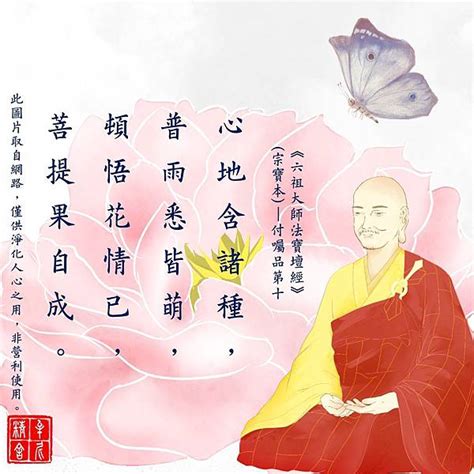 心地含諸種，
普雨悉皆萌，
頓悟花情已，
菩提果自成。
《六祖大師法寶壇經》
(宗寶本)—付囑品第十
此圖片取自網路，僅供淨化人心之用，非營利使用。